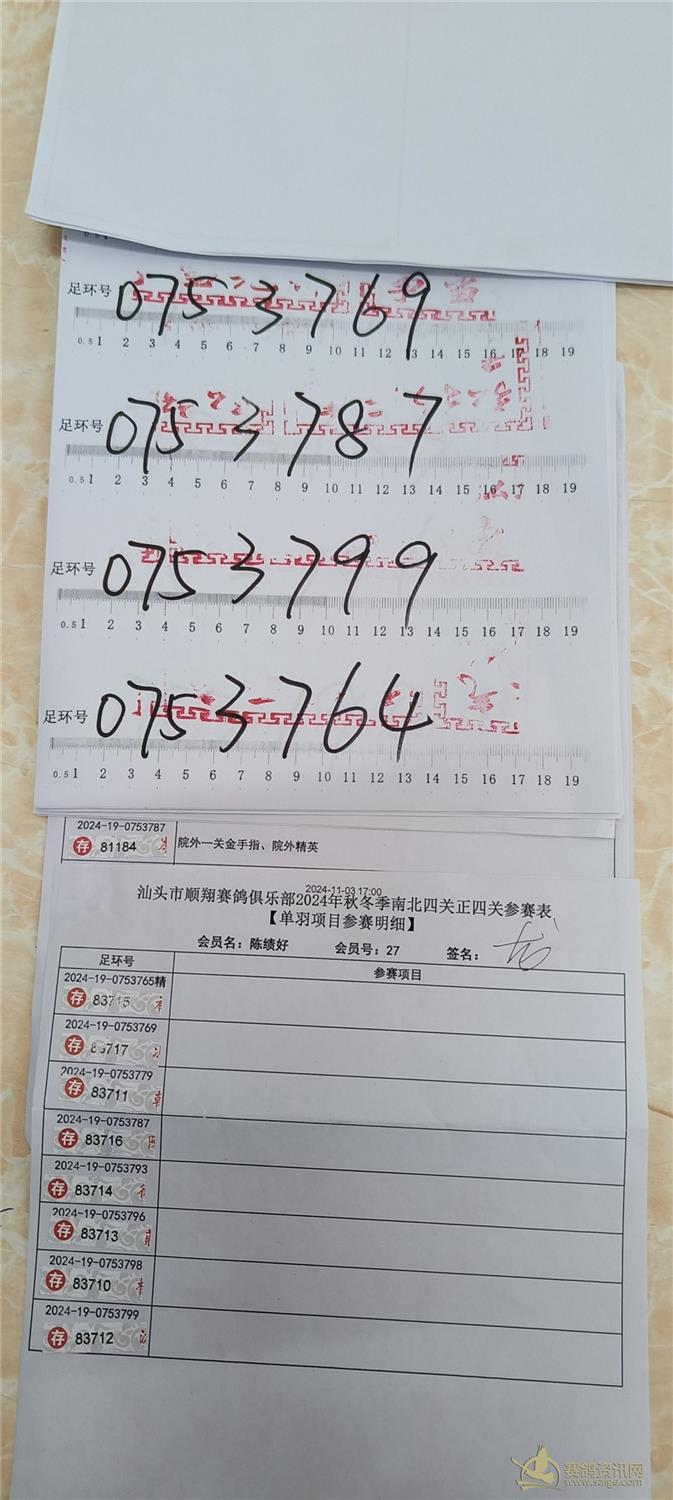 足环号 0753769
0.5 1 2 3 4 5 6 7 8 9 10 11 12 13 14 15 16 17 18 19
足环号 0753787
0.5 1 2 3 4 5 6 7 8 9 10 11 12 13 14 15 16 17 18 19
足环号 0753799
0.5 1 2 3 4 5 6 7 8 9 10 11 12 13 14 15 16 17 18 19
足环号 0753764
0.5 1 2 3 4 5 6 7 8 9 10 11 12 13 14 15 16 17 18 19
2024-19-0753787
存 81184 院外一关金手指、院外精英
2024-11-03 17:00
汕头市顺翔赛鸽俱乐部2024年秋冬季南北四关正四关参赛表
【单羽项目参赛明细】
会员名：陈绩好 会员号：27 签名：
足环号 参赛项目
2024-19-0753765精
存 83715
2024-19-0753769
存 83717
2024-19-0753779
存 83711
2024-19-0753787
存 83716
2024-19-0753793
存 83714
2024-19-0753796
存 83713
2024-19-0753798
存 83710
2024-19-0753799
存 83712
赛鸽资讯网
www.saige.com